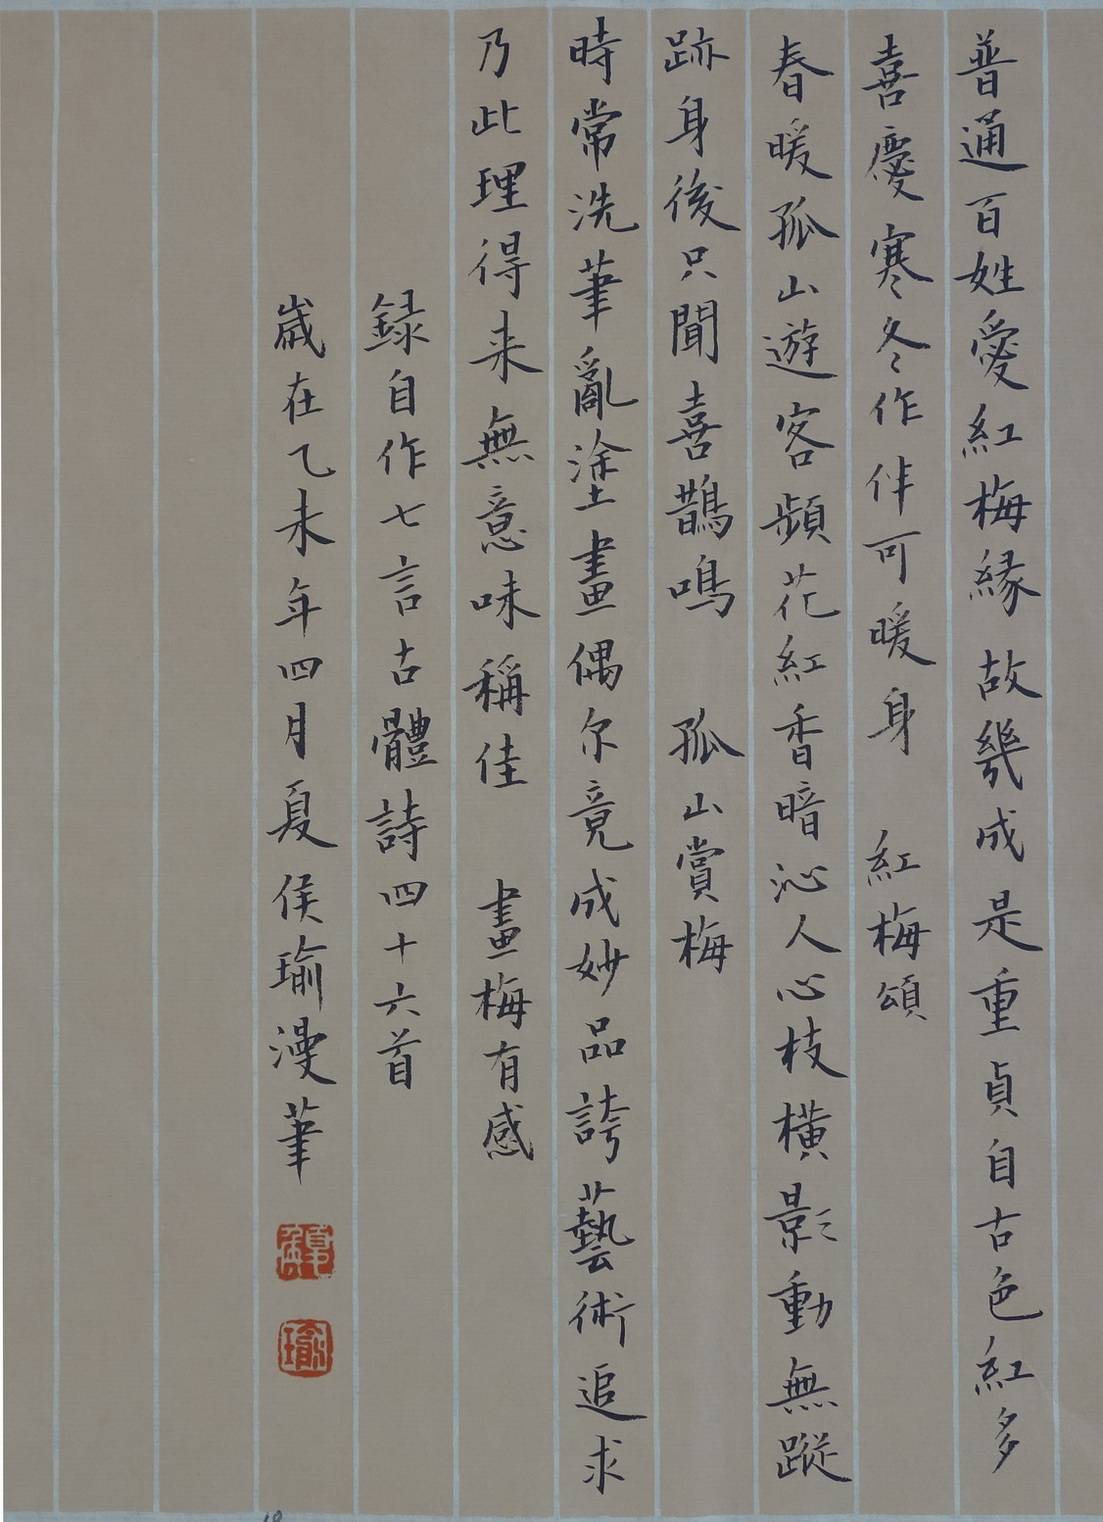 普通百姓愛紅梅緣故幾成是重貞自古色紅多
喜慶寒冬作伴可暖身 紅梅頌
春暖孤山遊客頻花紅香暗沁人心枝橫影動無蹤
跡身後只聞喜鵲鳴 孤山賞梅
時常洗筆亂塗畫偶尔竟成妙品誇藝術追求
乃此理得来無意味稱佳 畫梅有感
録自作七言古體詩四十六首
歲在乙未年四月夏侯瑜漫筆
夏侯
瑜